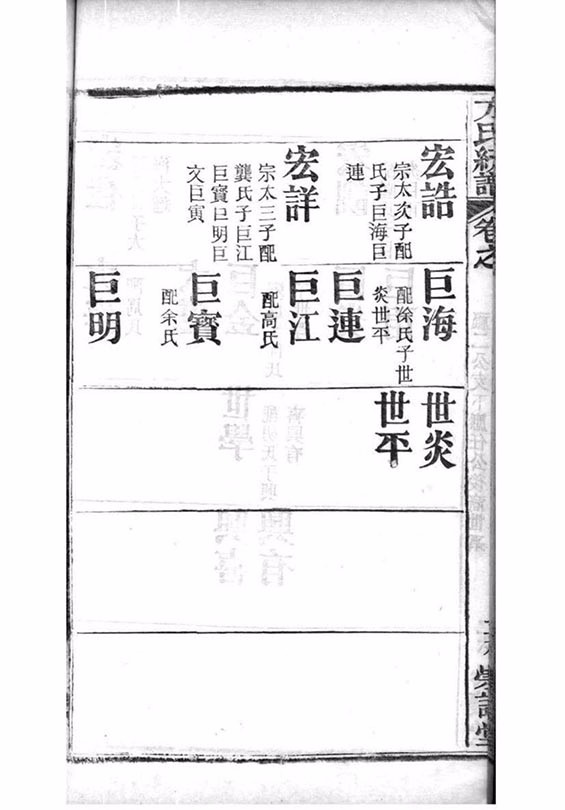 宏誥
宗太次子配
氏子巨海巨
連
宏詳
宗太三子配
龔氏子巨江
巨賓巨明巨
文巨寅
巨海
配涂氏子世
炎世平
巨連
巨江
配高氏
巨賓
配余氏
巨明
世炎
世平
方氏統譜
卷之